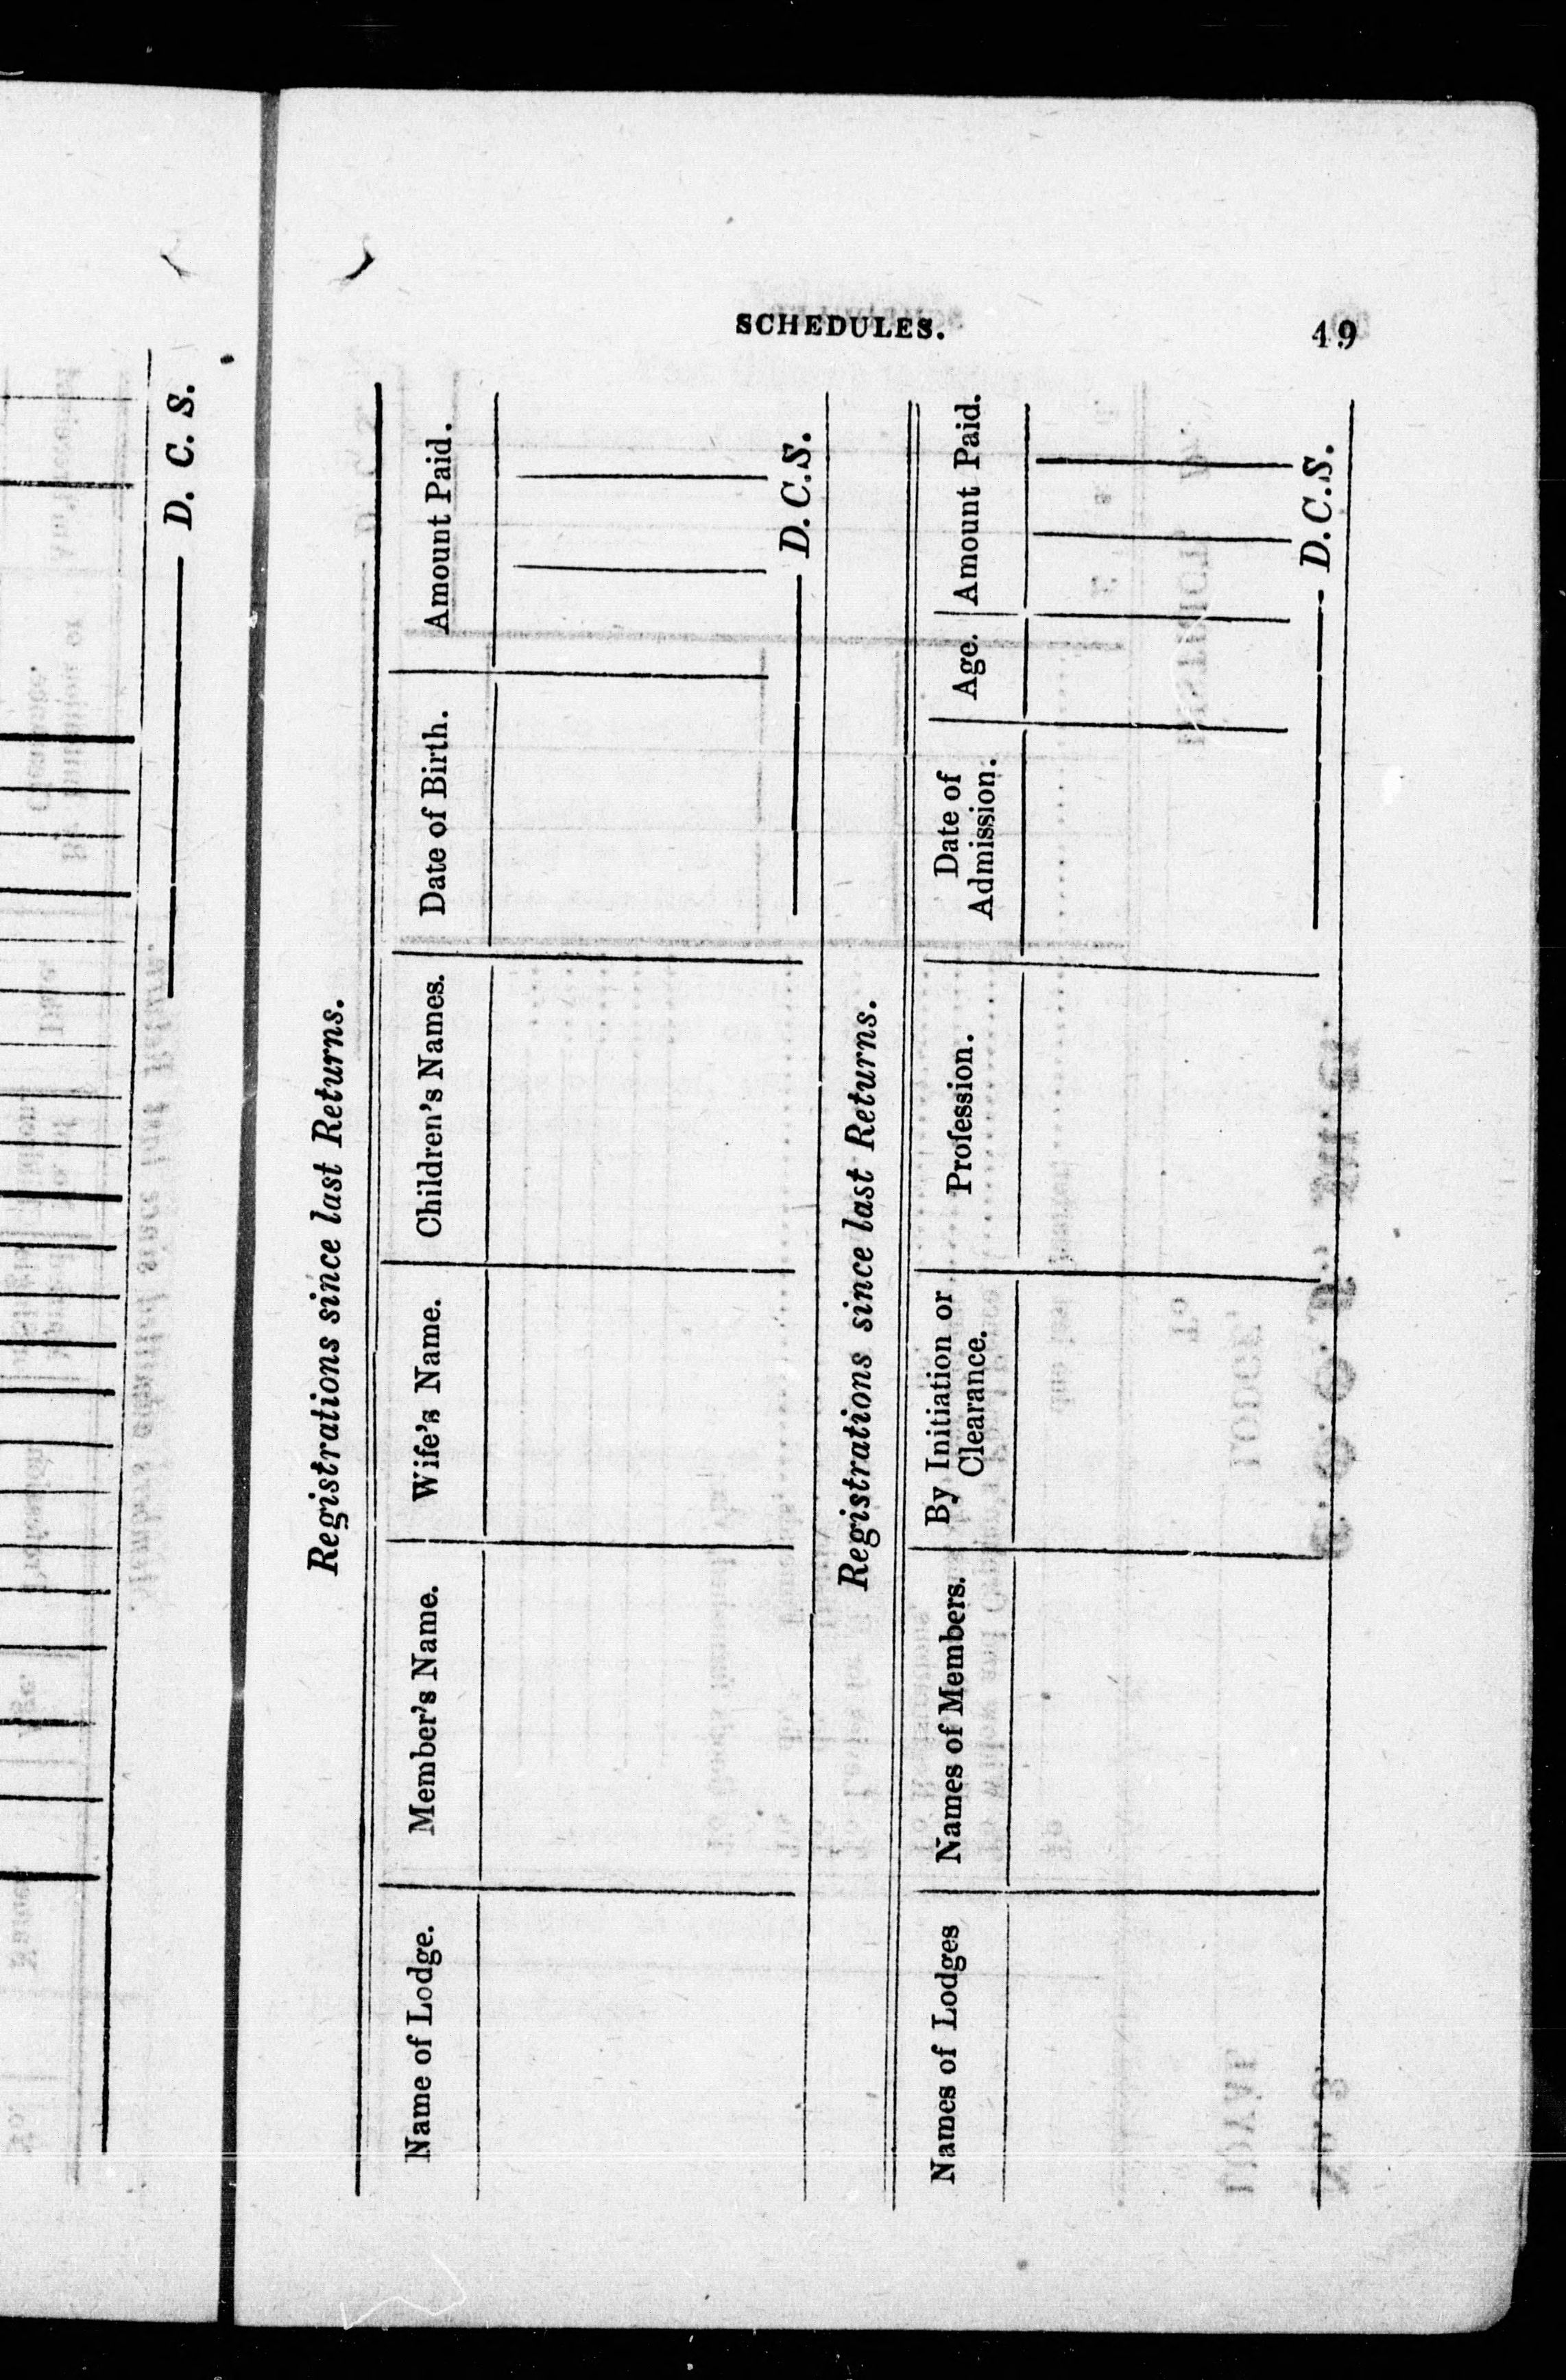 D. C. S.
SCHEDULES. 49
Registrations since last Returns.
Name of Lodge. Member's Name. Wife's Name. Children's Names. Date of Birth. Amount Paid.
D.C.S.
Registrations since last Returns.
Names of Lodges Names of Members. By Initiation or Clearance. Profession. Date of Admission. Age. Amount Paid.
D.C.S.